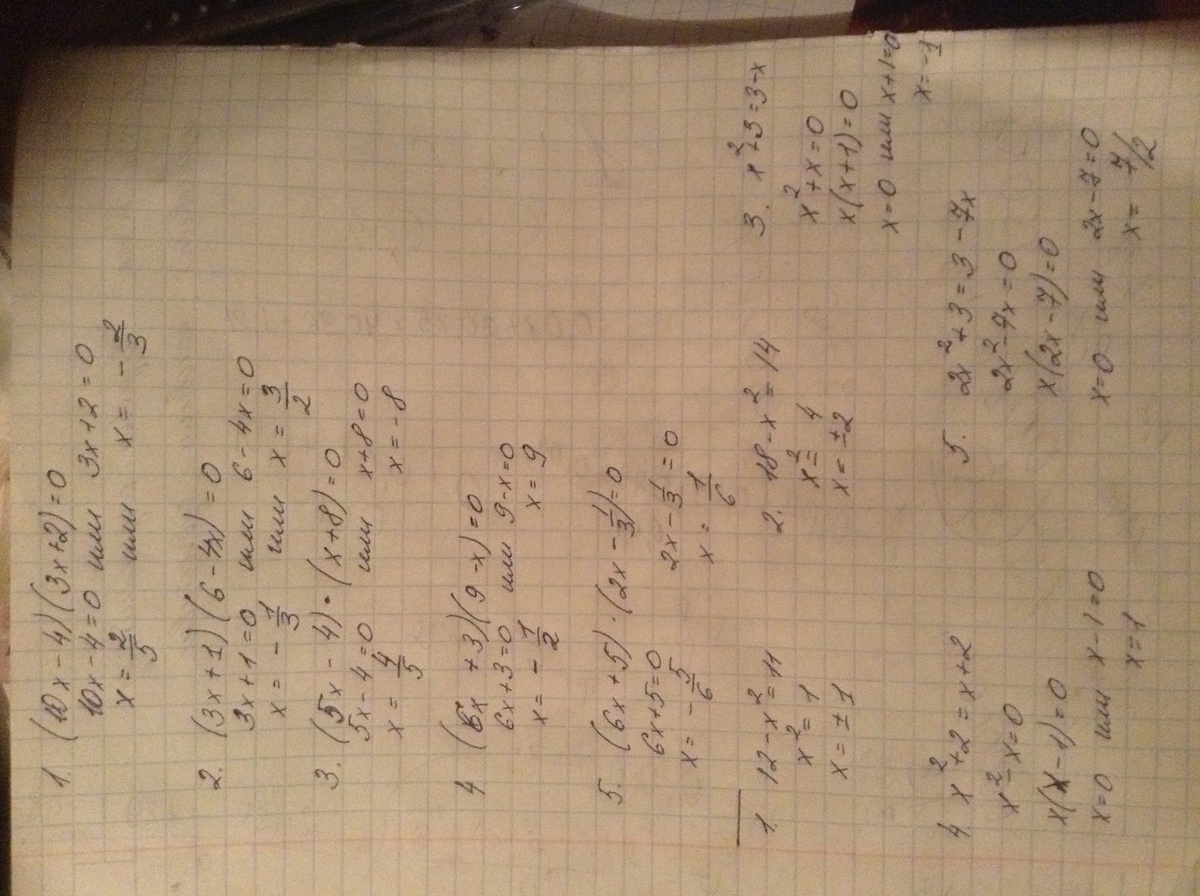 1. (10x - 4)(3x+2)=0
10x - 4=0 или 3x+2=0
x = 2/5 или x = - 2/3
2. (3x+1)(6-4x)=0
3x+1=0 или 6-4x=0
x = - 1/3 или x = 3/2
3. (5x - 4) · (x+8)=0
5x-4=0 или x+8=0
x = 4/5 x=-8
4. (6x +3)(9-x)=0
6x+3=0 или 9-x=0
x = - 1/2 x=9
5. (6x+5) · (2x - 1/3)=0
6x+5=0 2x - 1/3 = 0
x = - 5/6 x = 1/6
1. 12-x²=11
x²=1
x=±1
2. 18-x²=14
x²=4
x=±2
3. x²+3=3-x
x²+x=0
x(x+1)=0
x=0 или x+1=0
x=-1
4. x²+2=x+2
x²-x=0
x(x-1)=0
x=0 или x-1=0
x=1
5. 2x²+3=3-7x
2x²-7x=0
x(2x-7)=0
x=0 или 2x-7=0
x= 7/2